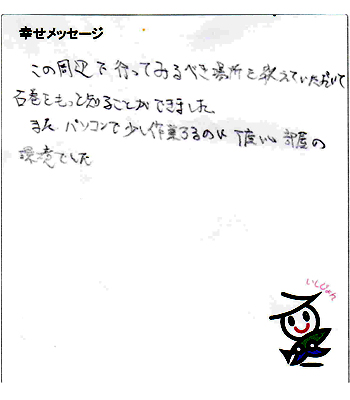 幸せメッセージ
この周辺で行ってみるべき場所を教えていただいて
石巻をもっと知ることができました
また パソコンで少し作業するのに 丁度いい 部屋の
環境でした
いしぴょん